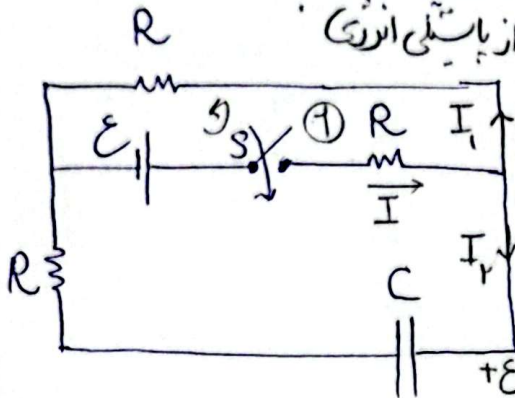 از پایستگی انرژی
R
ε S ① R I₁
I
R I₂
C
+ε